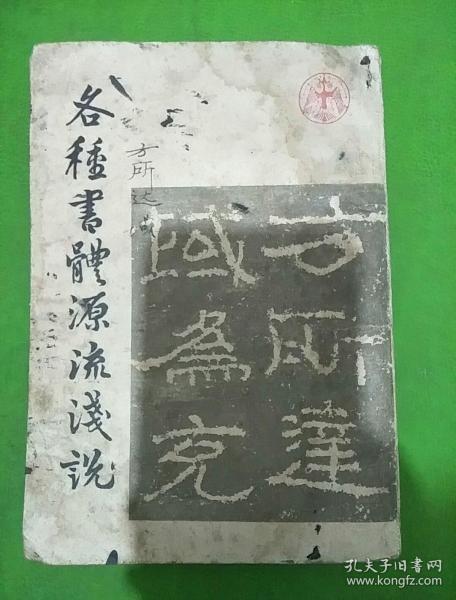 各種書體源流淺説
方所达
方所達
域為克
孔夫子旧书网
www.kongfz.com